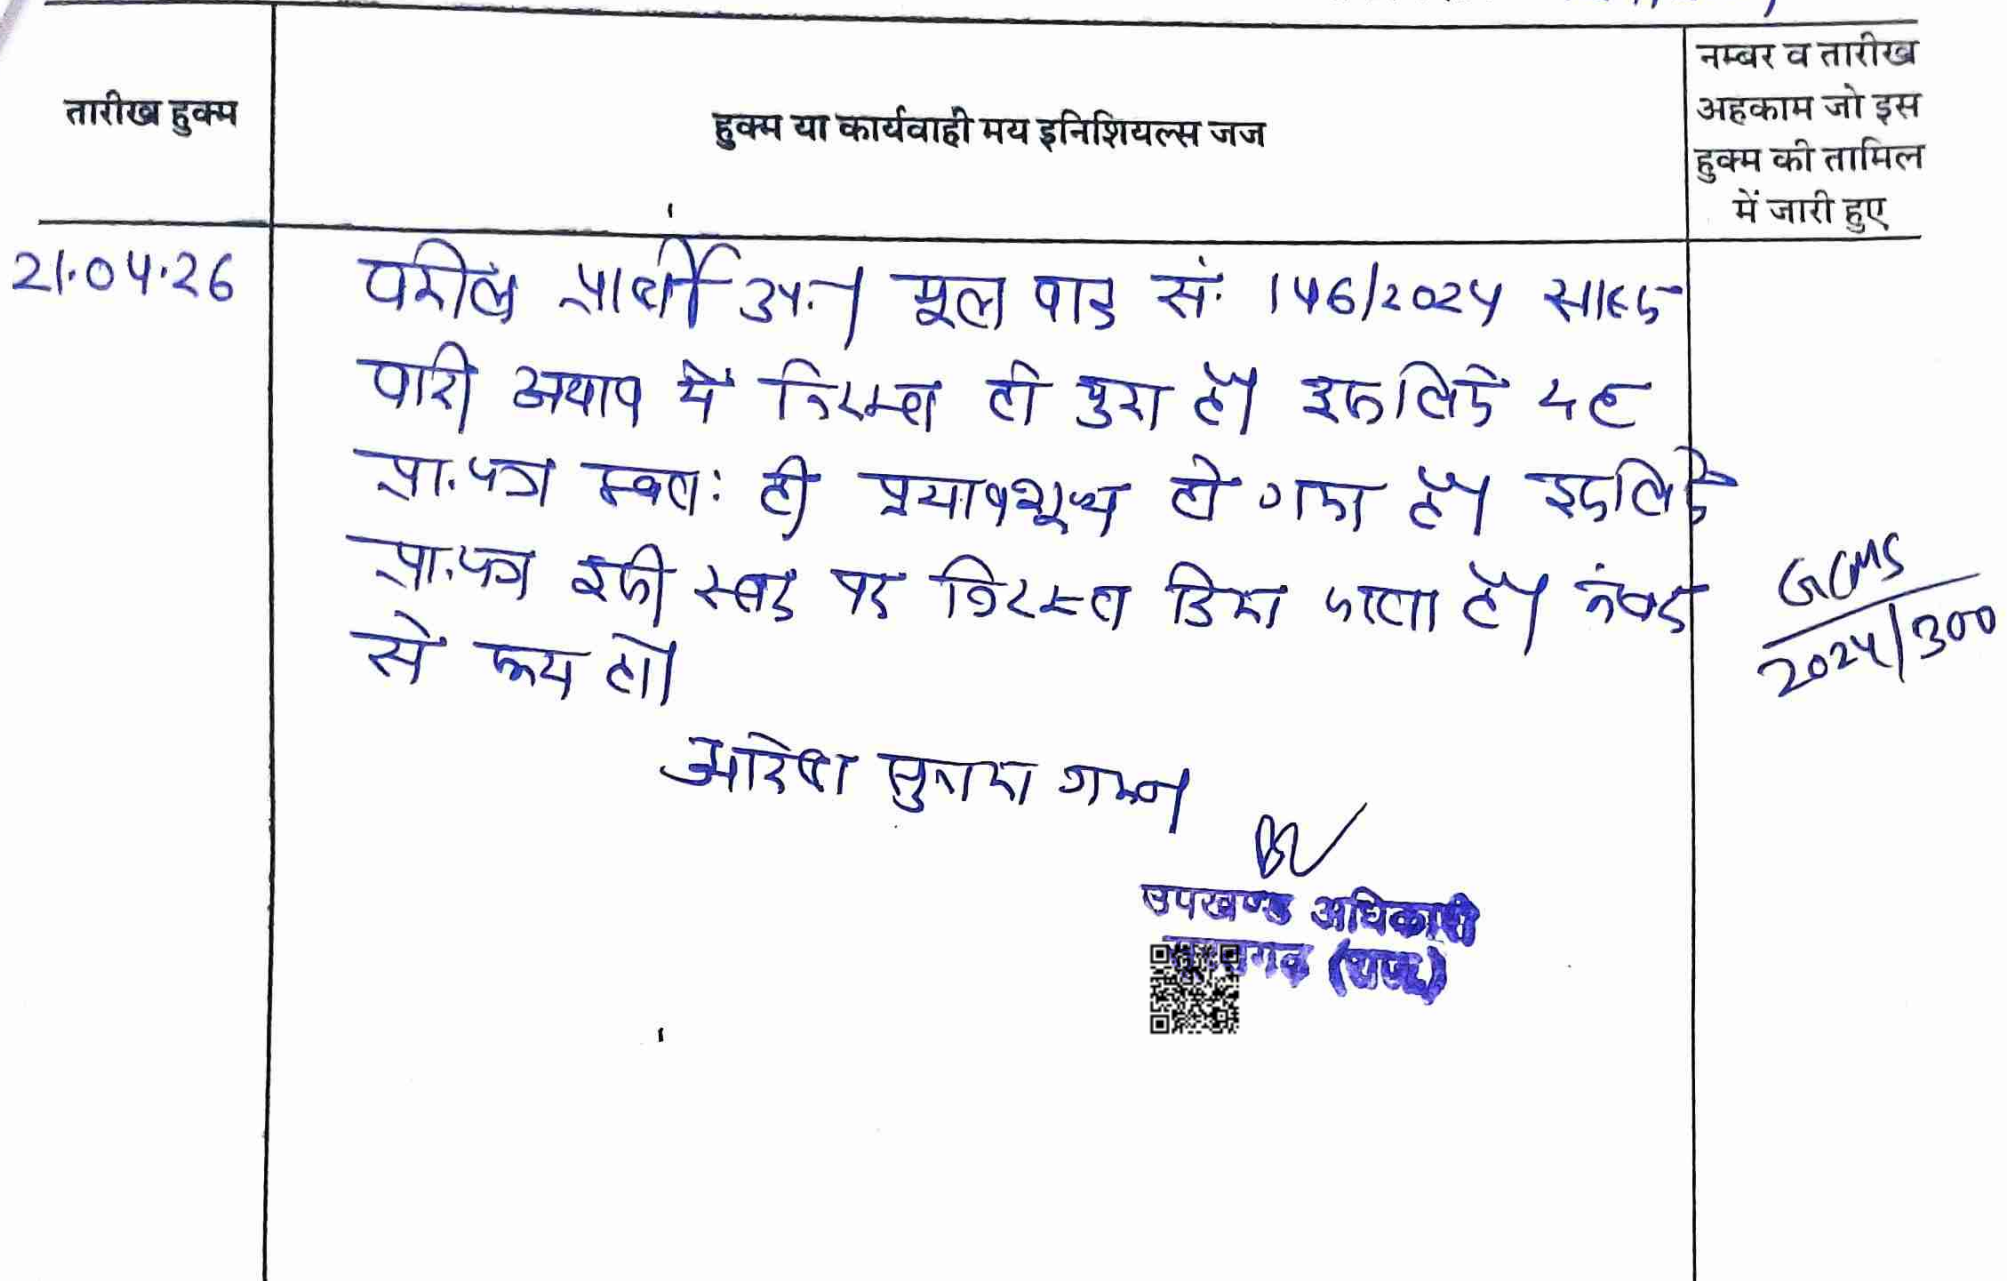 तारीख हुक्म
हुक्म या कार्यवाही मय इनिशियल्स जज
नम्बर व तारीख
अहकाम जो इस
हुक्म की तामिल
में जारी हुए
21.04.26
वकील प्रार्थी उप.। मूल वाद सं. 146/2024 साक्ष्य
वादी अभाव में निरस्त हो चुका है। इसलिये यह
प्रा.पत्र स्वतः ही प्रभावशून्य हो गया है। इसलिये
प्रा.पत्र इसी स्तर पर निरस्त किया जाता है। नंबर
से कम हो।
आदेश सुनाया गया।
GCMS
2024/300
उपखण्ड अधिकारी
(राज.)